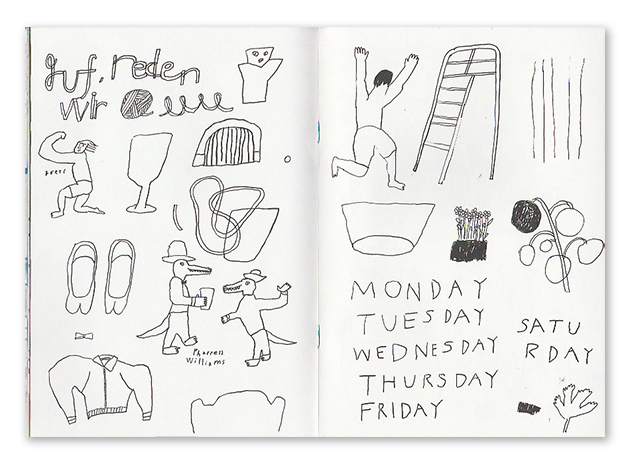 guf, reden
wir
Pharren
Williams
MONDAY
TUESDAY
WEDNESDAY
THURSDAY
FRIDAY
SATU
RDAY